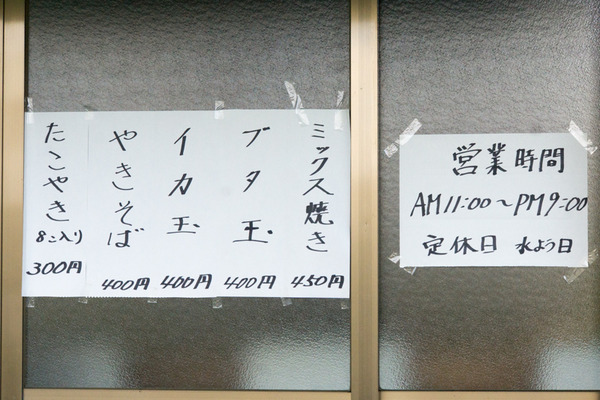 ミックス焼き
450円
ブタ玉
400円
イカ玉
400円
やきそば
400円
たこやき
8こ入り
300円
営業時間
AM11:00~PM9:00
定休日 水よう日